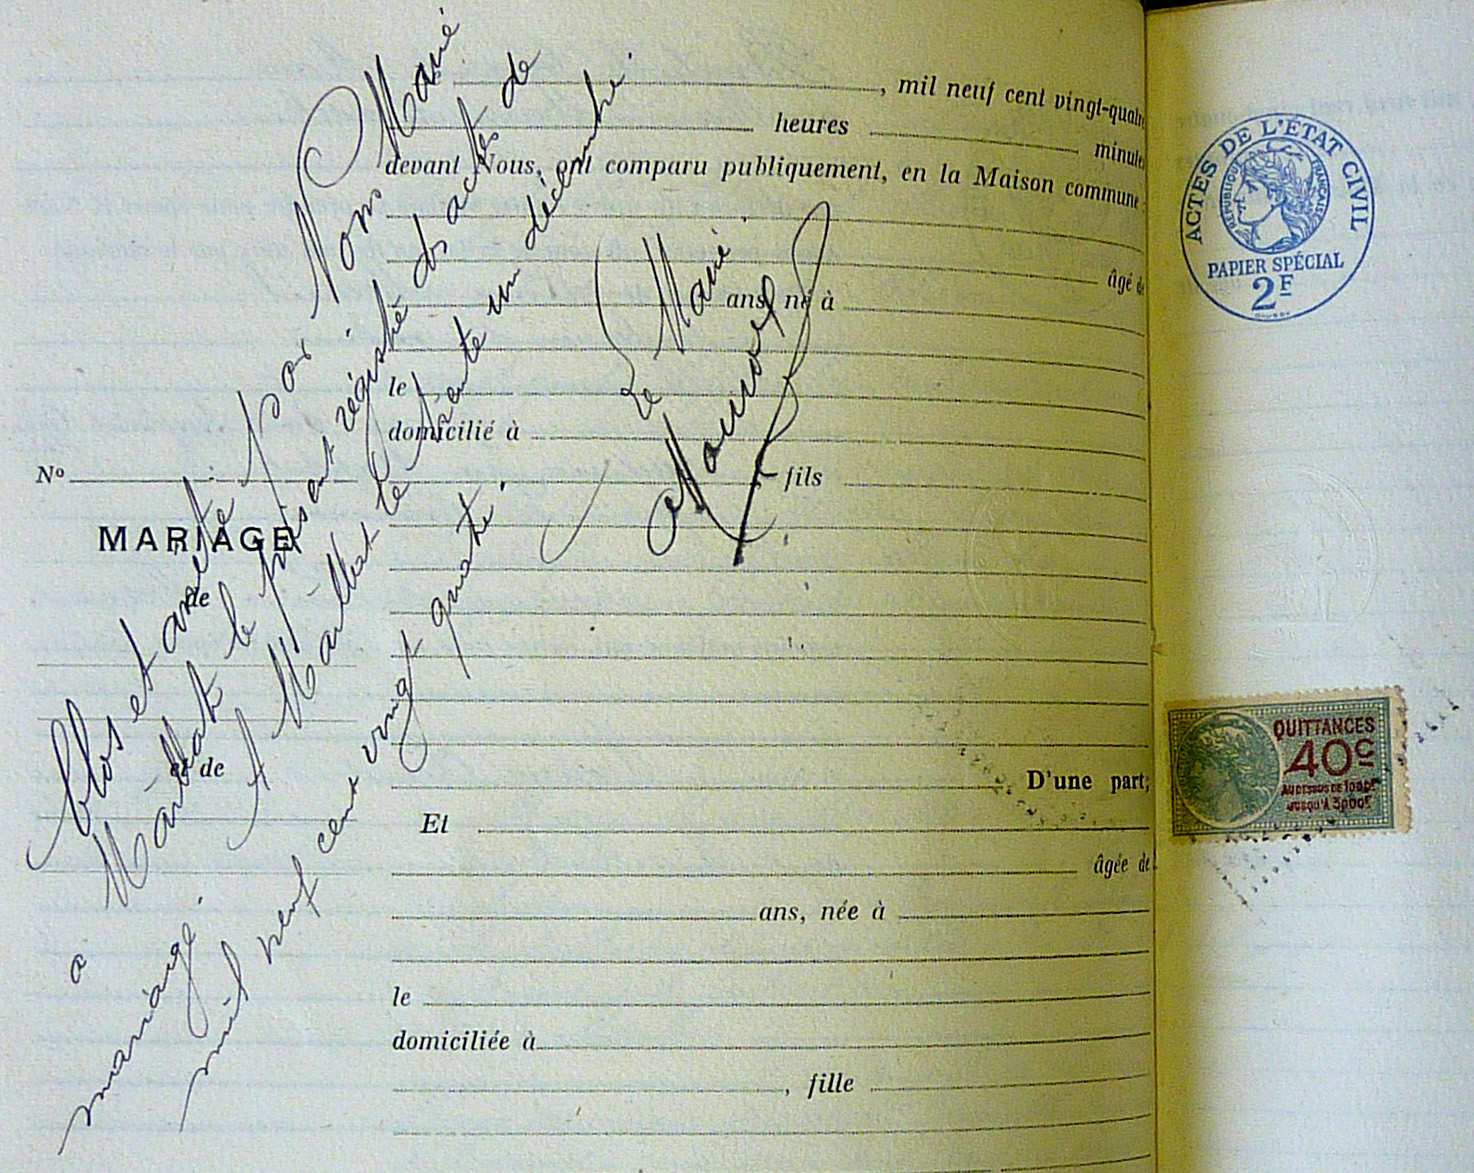 , mil neuf cent vingt-quatre
heures minutes
devant Nous, ont comparu publiquement, en la Maison commune :
âgé de
ans, né à
le
domicilié à
fils
D'une part;
Et
âgée de
ans, née à
le
domiciliée à
, fille
Nº
MARIAGE
de
et de
Clos et arrêté par Nous Maire
à Maulhat le présent régistre des actes de
mariange. A Maulhat le trente un décembre
mil neuf cent vingt quatre.
Le Maire
ACTES DE L'ÉTAT CIVIL
RÉPUBLIQUE FRANÇAISE
PAPIER SPÉCIAL
2F
QUITTANCES
40c
AU DESSUS DE 1000F
JUSQU'À 3000F